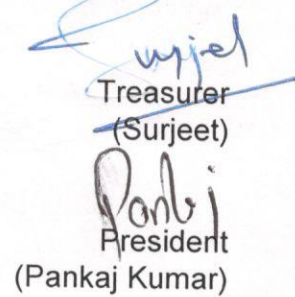 Surjeet
Treasurer
(Surjeet)
Pankaj
President
(Pankaj Kumar)